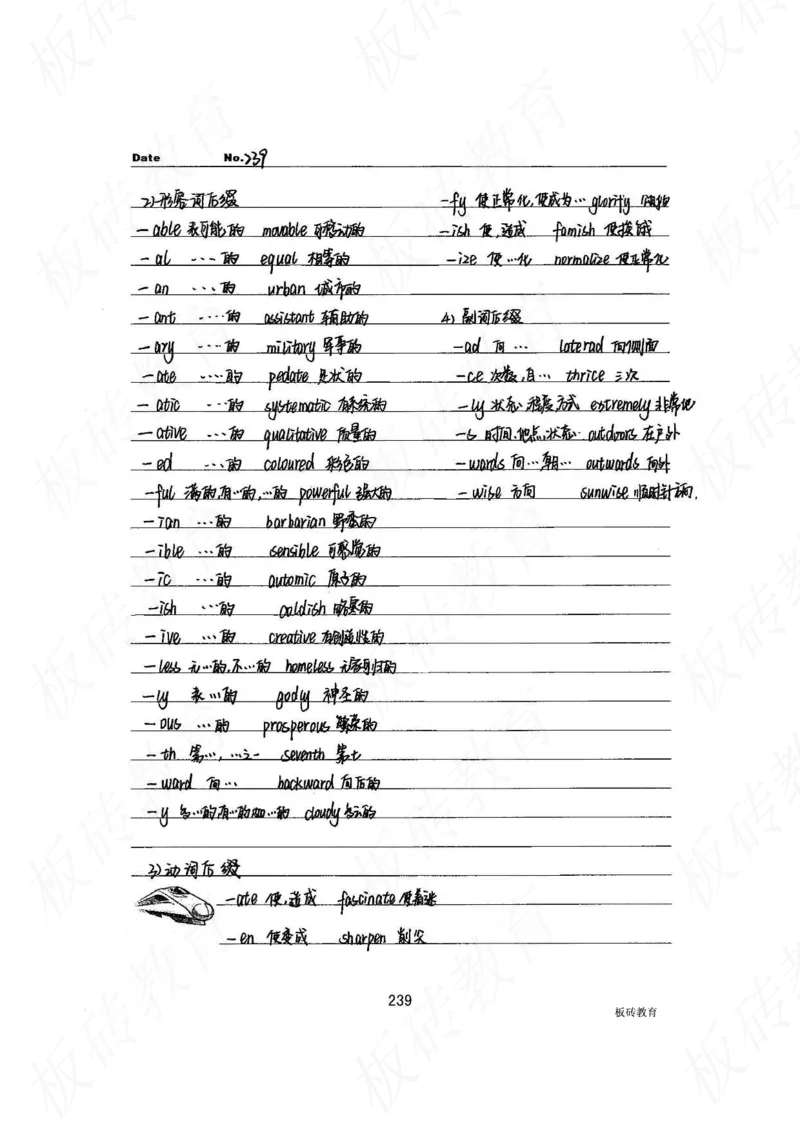 Date No.239
2)形容词后缀
-able 表可能的 movable 可移动的
-al …的 equal 相等的
-an …的 urban 城市的
-ant …的 assistant 辅助的
-ary …的 military 军事的
-ate …的 pedate 足状的
-atic …的 systematic 有系统的
-ative …的 qualitative 质量的
-ed …的 coloured 彩色的
-ful 满的,有…的,…的 powerful 强大的
-ian …的 barbarian 野蛮的
-ible …的 sensible 可感觉的
-ic …的 automic 原子的
-ish …的 coldish 略寒的
-ive …的 creative 有创造性的
-less 无…的,不…的 homeless 无家可归的
-ly 表…的 godly 神圣的
-ous …的 prosperous 繁荣的
-th 第…, …之一 seventh 第七
-ward 向… backward 向后的
-y 多…的有…的如…的 cloudy 多云的
3)动词后缀
-ate 使,造成 fascinate 使着迷
-en 使变成 sharpen 削尖
-fy 使正常化,使成为… glorify
-ish 使,造成 famish 使挨饿
-ize 使…化 normalize 使正常化
4)副词后缀
-ad 向… laterad 向侧面
-ce 次数,自… thrice 三次
-ly 状态、程度、方式 extremely 非常地
-s 时间、地点、状态… outdoors 在户外
-wards 向…朝… outwards 向外
-wise 方向 sunwise 顺时针方向.
239
板砖教育